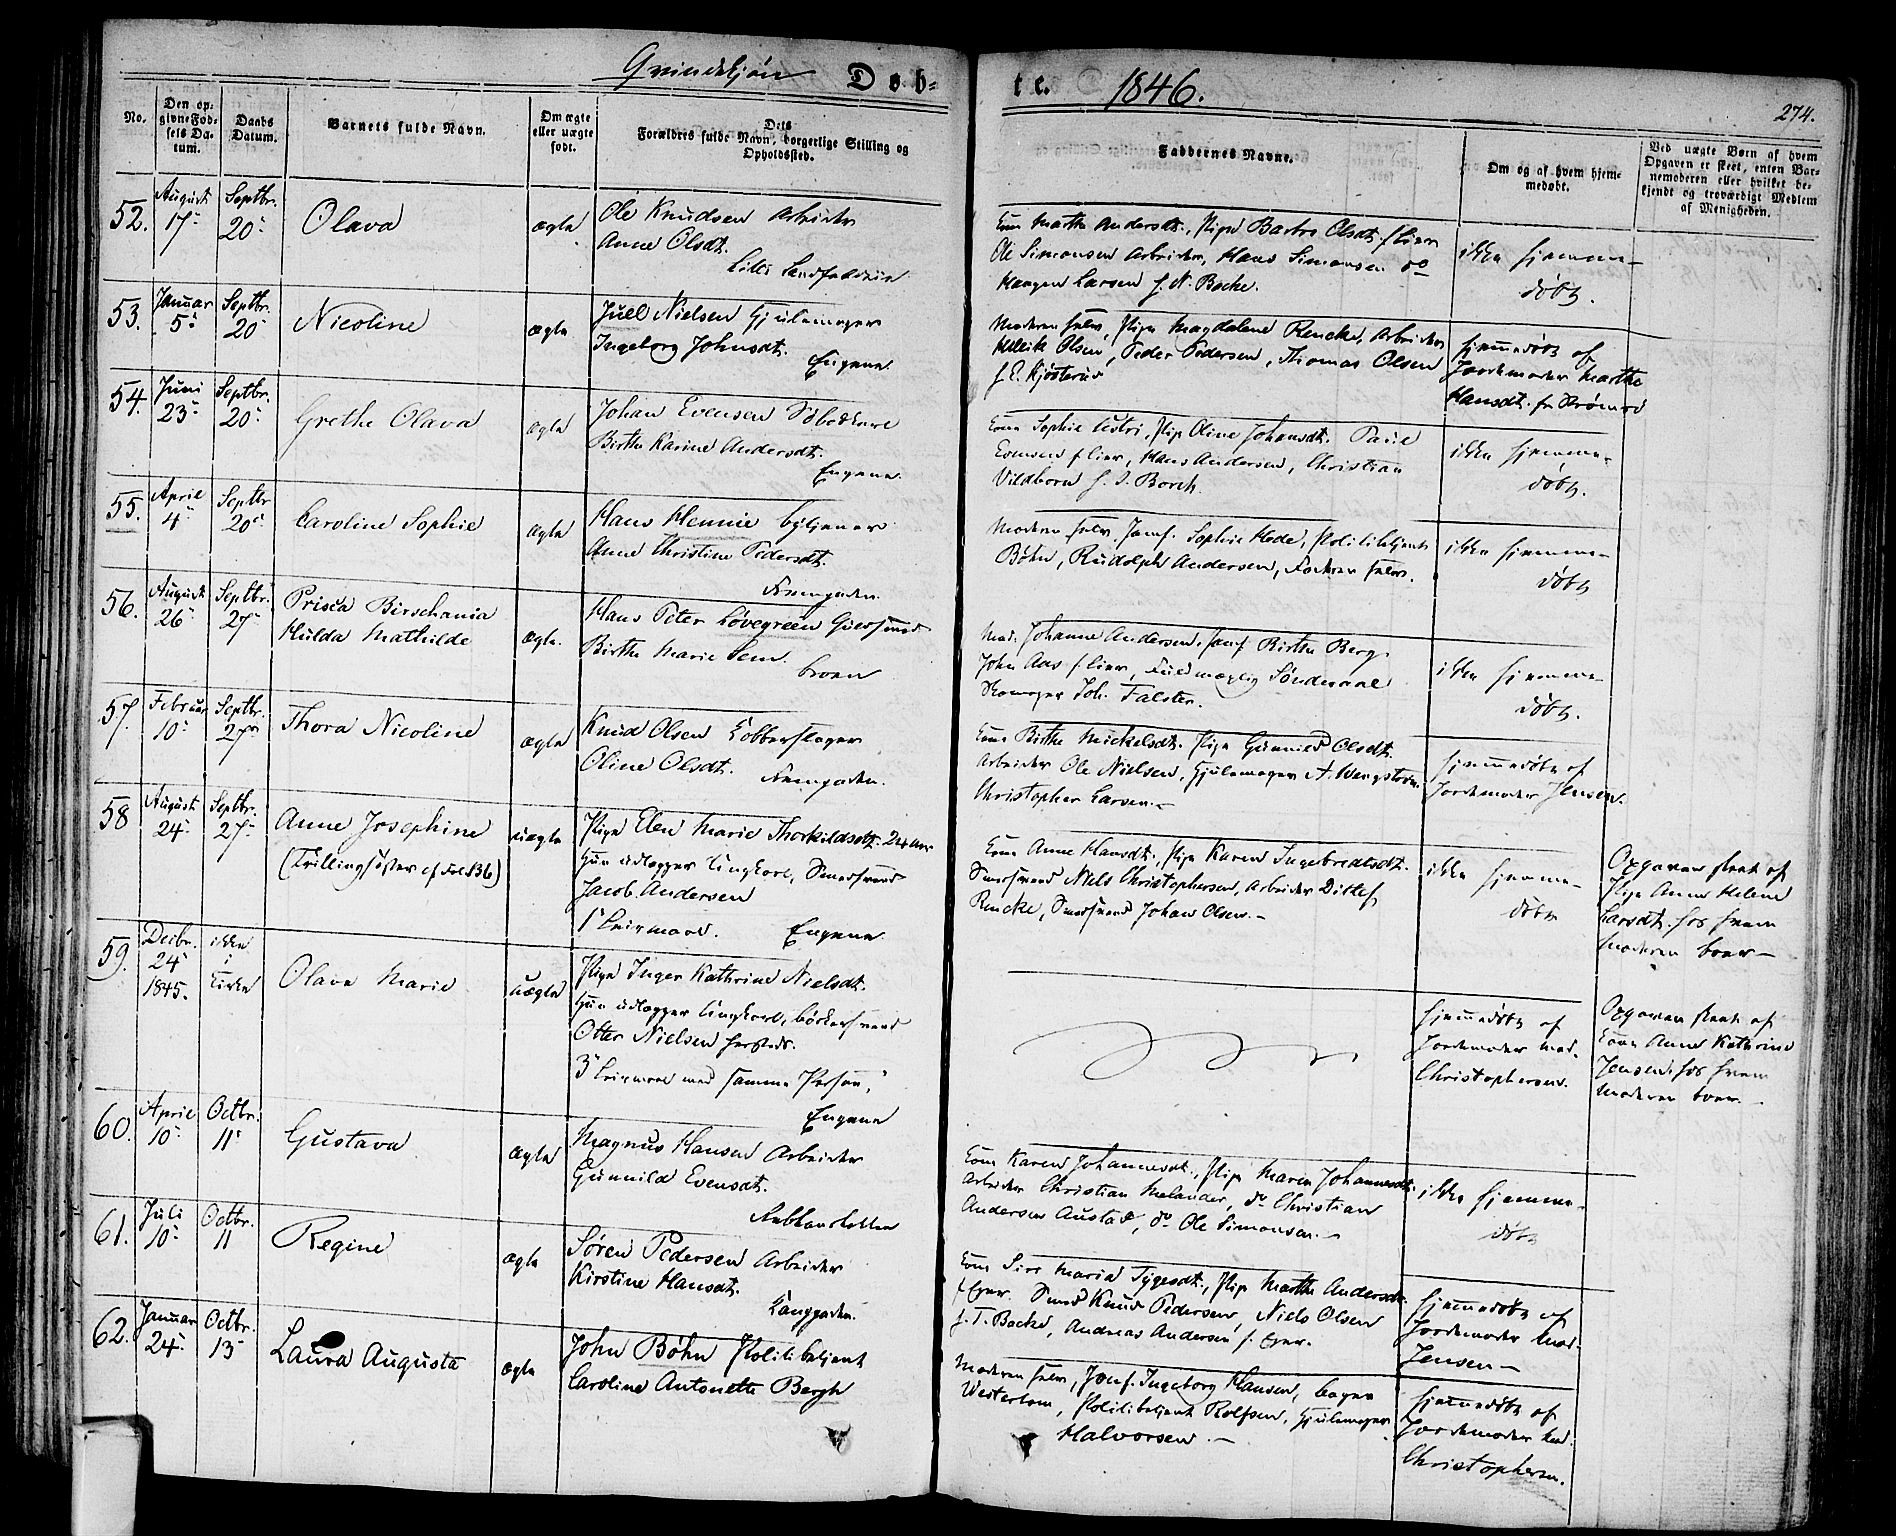 Qvindekjön Döb-
te. 1846.
274.
No.
Den op-
givne Fød-
sels Da-
tum.
Daabs
Datum.
Barnets fulde Navn.
Om ægte
eller uægte
født.
Dets
Forældres fulde Navn, borgerlige Stilling og
Opholdssted.
Faddernes Navne.
Om og af hvem hjem-
medøbt.
Ved uægte Børn af hvem
Opgaven er skeet, enten Bar-
nemoderen eller hvilket be-
kjendt og troværdigt Medlem
af Menigheden.
52.
August
17
Septbr.
20
Olava
ægte
Ole Knudsen Arbeider
Anne Olsdt.
Lille
Kone Marthe Andersdt., Pige Barbro Olsdt.
Ole Simonsen Arbeider, Hans Simonsen do
Haagen Larsen f. N. Backe.
ikke hjemme-
døbt.
53.
Januar
5
Septbr.
20
Nicoline
ægte
Juel Nielsen Hjulemager
Ingeborg Johnsdt.
Engene
Moderen selv, Pige Magdalene Rencke, Arbeider
Olsen, Peder Pedersen, Thomas Olsen
f. E. Kjösterud
hjemmedøbt af
Jordemoder Marthe
Hansdt. fra Strömsö
54.
Juni
23
Septbr.
20
Grethe Olava
ægte
Johan Evensen
Birthe Karine Andersdt.
Engene.
Kone Sophie, Pige Oline Johansdt.
Evensen, Hans Andersen, Christian
Vildhorn f. J. Borch.
ikke hjemme-
døbt.
55.
April
4
Septbr
20
Caroline Sophie
ægte
Hans Hennie Bytjener
Anne Christine Pedersdt.
Moderen selv, Jomf. Sophie Hede, Politibetjent
Böhn, Rudolph Andersen, Faderen selv.
ikke hjemme-
døbt
56.
August
26
Septbr.
27
Prisca Birschania
Hulda Mathilde
ægte.
Hans Peter Lövegreen Guldsmed
Birthe Marie Sem.
Broen
Mad. Johanne Andersen, Jomf Birthe Berg
John Aas, Fuldmægtig Sönderaal
Skomager Joh. Falster.
ikke hjemme-
døbt.
57.
Februar
10
Septbr.
27
Thora Nicoline
ægte
Knud Olsen Kobberslager
Oline Olsdt.
Kone Birthe Mickelsdt. Pige Gunnild Olsdt.
Arbeider Ole Nielsen, Hjulemager A. Wengström
Christopher Larsen.
hjemmedøbt af
Jordemoder Jensen.
58
August
24
Septbr.
27
Anne Josephine
(Tvillingsöster cf fol 36)
uægte
Pige Elen Marie Thorkildsdt. 24 Aar
Hun udlægger Ungkarl, Smedsvend
Jacob Andersen
1 Leiermaal. Engene
Kone Anne Hansdt., Pige Karen Ingebretsdt.
Smedsvend Niels Christophersen, Arbeider Ditlef
Rencke, Smedsvend Johan Olsen.
ikke hjemme-
døbt
Opgaven skeet af
Pige Anne Helene
Larsdt. hos hvem
Moderen boer
59.
Decbr.
24
1845.
ikke
i
Kirke
Olava Marie
uægte
Pige Inger Kathrine Nielsdt.
Hun udlægger Ungkarl, Bödkersvend
Otter Nielsen
3 Leiermaal med samme Person,
Engene
hjemmedøbt af
Jordemoder Mad.
Christophersen.
Opgaven skeet af
Kone Anne Kathrine
Jensen, hos hvem
Moderen boer.
60.
April
10
Octbr.
11
Gustava
ægte
Magnus Hansen Arbeider
Gunnild Evensdt.
Kone Karen Johannesdt., Pige Maren Johannesdt.
Arbeider Christian Melander, do Christian
Andersen Austad, do Ole Simonsen.
ikke hjemme-
døbt
61.
Juli
10
Octbr.
11
Regine
ægte
Sören Pedersen Arbeider
Kirstine Hansdt.
Langgaden.
Kone Siri Maria Tygesdt., Pige Marthe Andersdt.
Smed Knud Pedersen, Niels Olsen
f. T. Backe, Andreas Andersen
hjemmedøbt af
Jordemoder Mad.
Jensen
62.
Januar
24
Octbr.
13
Laura Augusta
ægte
John Böhn Politibetjent
Caroline Antonette Bergh
Moderen selv, Jomf. Ingeborg Hansen, Bager
Westerbom, Politibetjent Rolfsen, Hjulemager
Halvorsen.
hjemmedøbt af
Jordemoder Mad.
Christophersen.